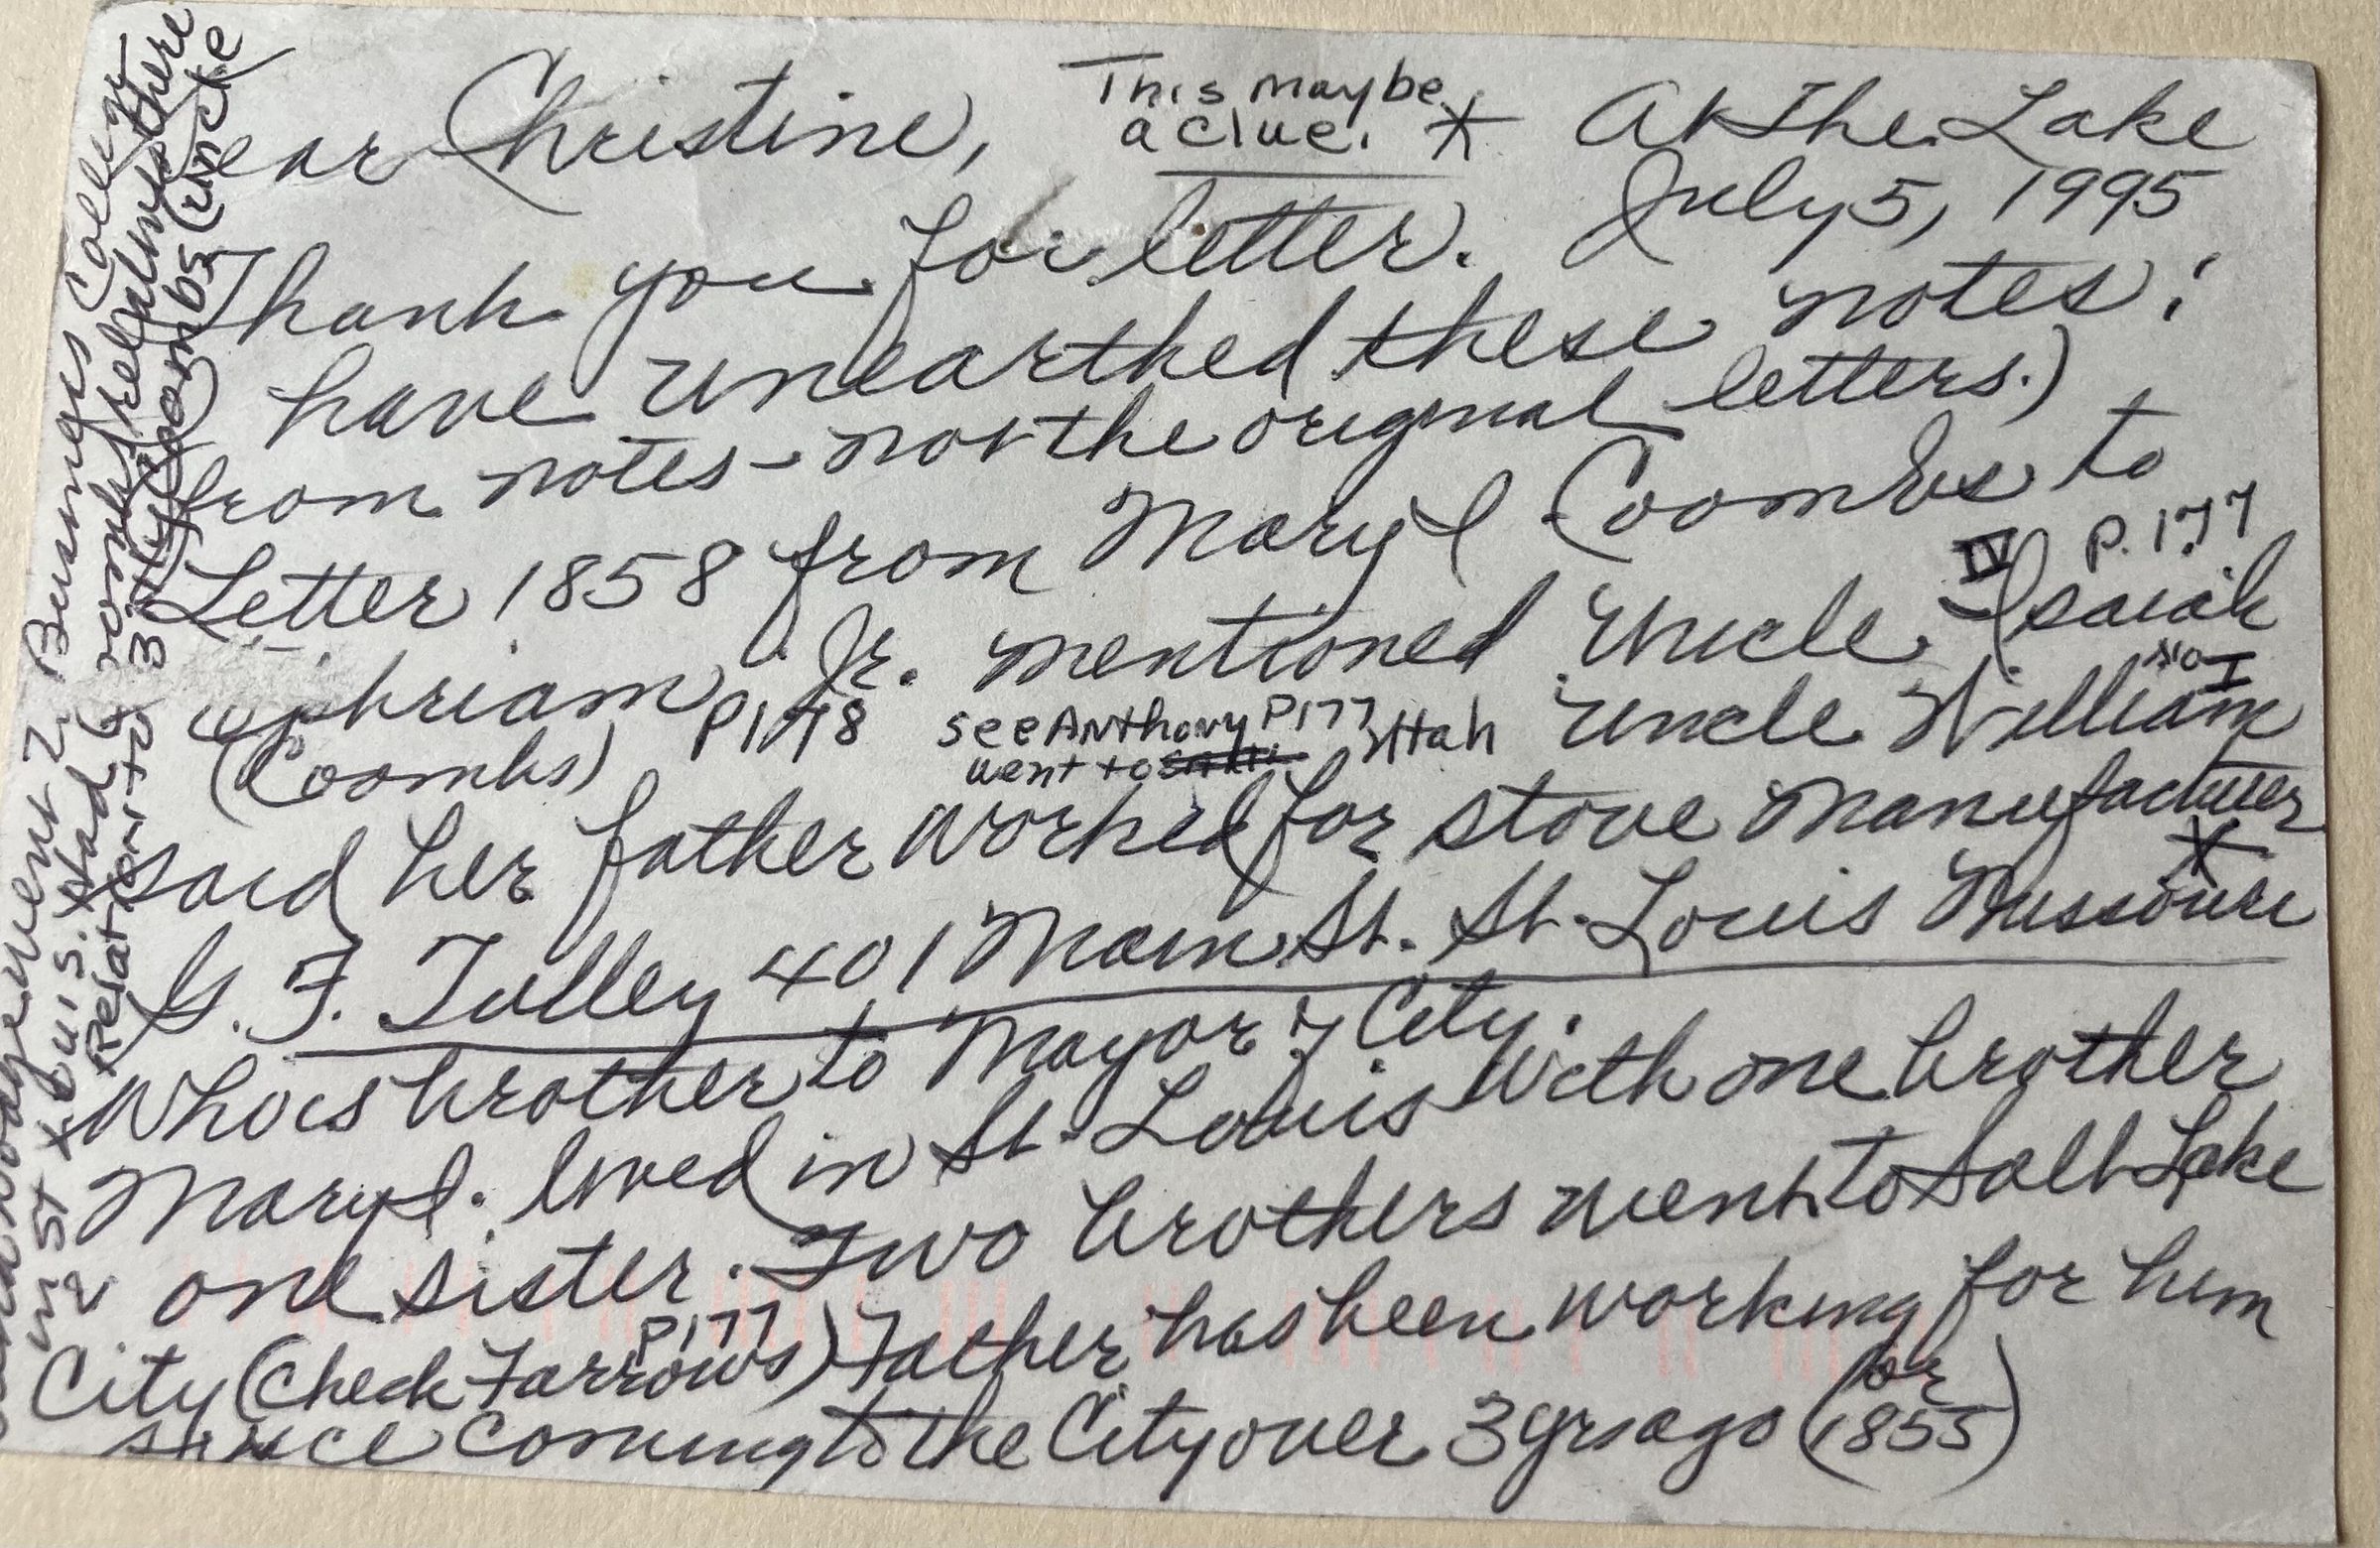 This maybe
a clue. *
At the Lake
July 5, 1995
ear Christine,
Thank you for letter.
have unearthed these notes:
from notes - not the original letters.)
Letter 1858 from Mary I Coombs to
Ephriam Jr. mentioned Uncle Isaiah
IV P. 177
(Coombs) P178 see Anthony P177 Utah Uncle William
No I
went to
said her father worked for stove manufacturer
G. F. Tulley 401 Main St. St. Louis Missouri
*
Who is brother to Mayor of City.
Mary I. lived in St. Louis with one brother
one sister. Two brothers went to Salt Lake
City (Check Farrows) Father has been working for him
P177
since coming to the City over 3 yrs ago (or 1855)
Business College
in St Louis. Had 6
Relation to
(uncle